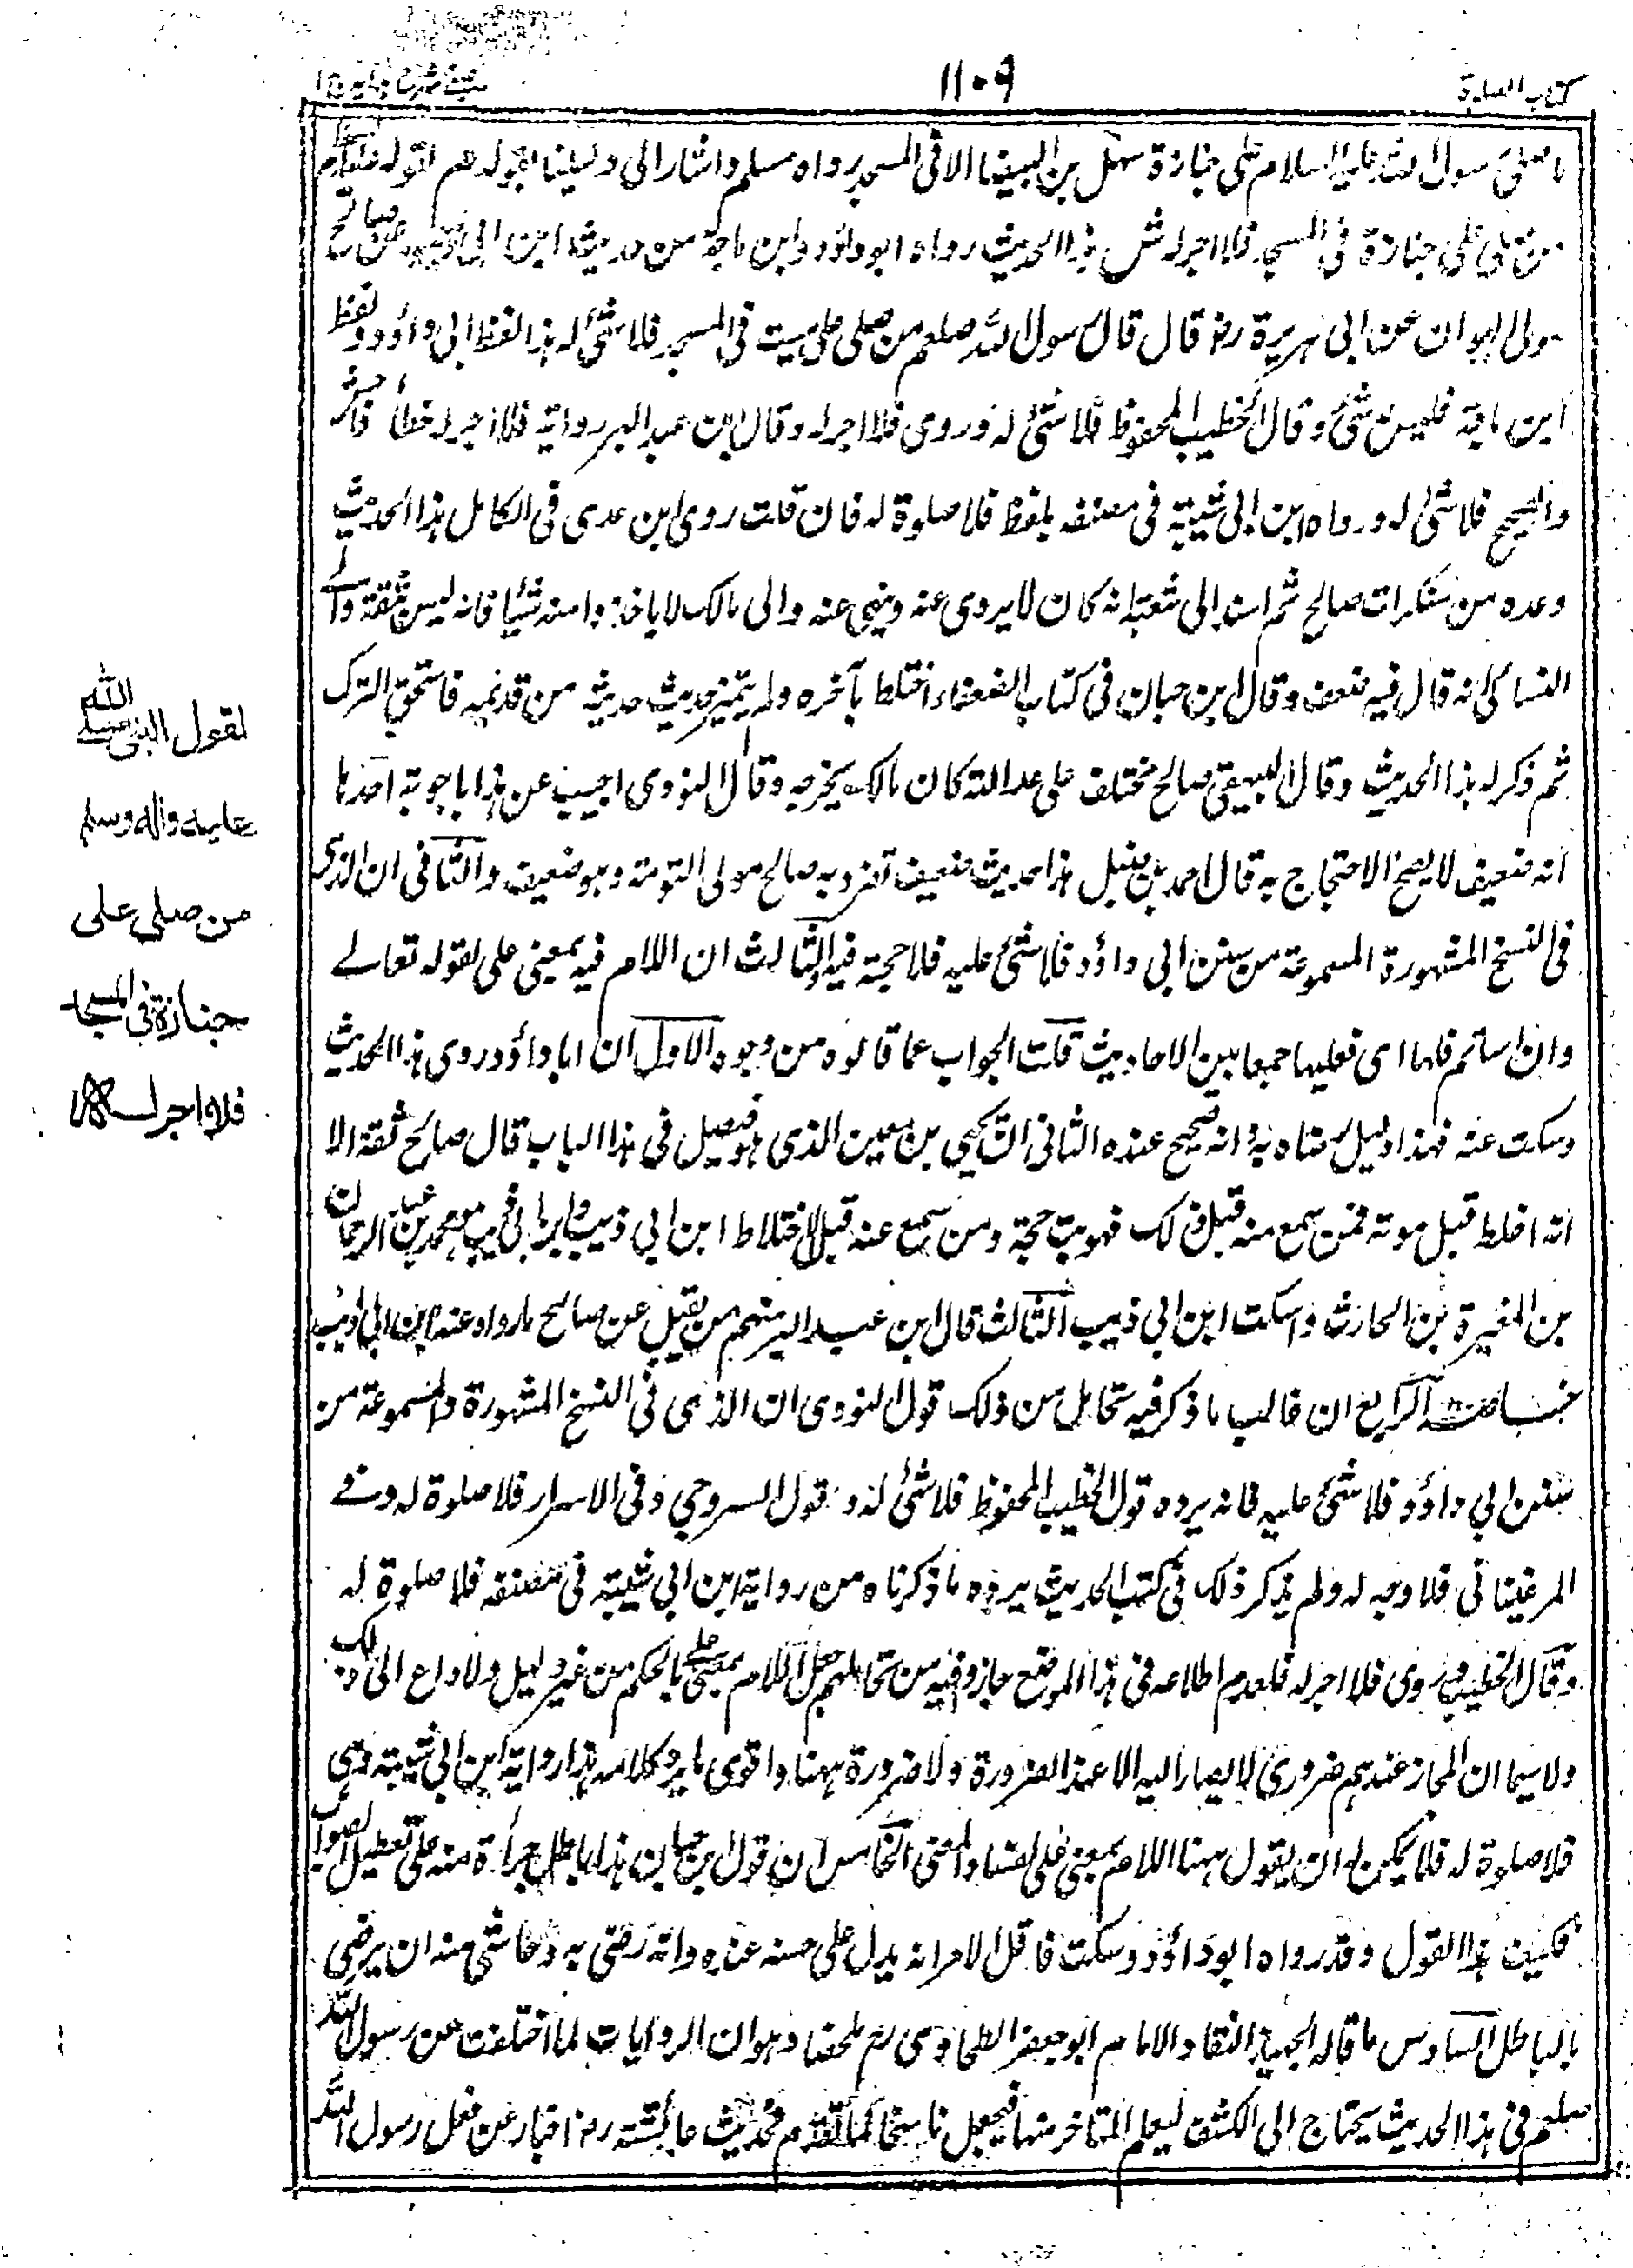 كتاب الصلوة
١١٠٩
ما صلى رسول الله عليه السلام على جنازة سهل بن البيضا الا فى المسجد رواه مسلم واشار الى دليلنا بقوله هم لقوله عليه السلام
من صلى على جنازة فى المسجد فلا اجر له ش هذا الحديث رواه ابو داؤد وابن ماجة من حديث ابن ابى ذئب عن صالح
مولى التوان عن ابى هريرة رضـ قال قال رسول الله صلعم من صلى على ميت فى المسجد فلا شئ له هذا لفظ ابى داؤد ولفظ
ابن ماجة فليس له شئ وقال الخطيب المحفوظ فلا شئ له وروى فلا اجر له وقال ابن عبد البر رواية فلا اجر له خطأ فاحش
والصحيح فلا شئ له ورواه ابن ابى شيبة فى مصنفه بلفظ فلا صلوة له فان قلت روى ابن عدى فى الكامل هذا الحديث
وعده من منكرات صالح ثم اسند الى شعبة انه كان لا يروى عنه وينهى عنه والى مالك لا ياخذوا منه شيئا فانه ليس بثقة والى
النسائى انه قال فيه ضعف وقال ابن حبان فى كتاب الضعفاء اختلط بآخره ولم يتميز حديث حديثه من قديمه فاستحق الترك
ثم ذكر له هذا الحديث وقال البيهقى صالح مختلف على عدالته كان مالك يجرحه وقال النووى اجيب عن هذا باجوبة احدها
انه ضعيف لا يصح الاحتجاج به قال احمد بن حنبل هذا حديث ضعيف تفرد به صالح مولى التومة وهو ضعيف والثانى ان الذى
فى النسخ المشهورة المسموعة من سنن ابى داؤد فلا شئ عليه فلا حجة فيه الثالث ان اللام فيه بمعنى على لقوله تعالى
وان اساتم فلها اى فعليها جمعا بين الاحاديث قلت الجواب عما قالوه من وجوه الاول ان ابا داؤد روى هذا الحديث
وسكت عنه فهذا دليل رضاه به وانه صحيح عنده الثانى ان يحيى بن معين الذى هو فيصل فى هذا الباب قال صالح ثقة الا
انه اختلط قبل موته فمن سمع منه قبل ذلك فهو ثبت حجة ومن سمع عنه قبل الاختلاط ابن ابى ذيب محمد بن عبد الرحمان
بن المغيرة بن الحارث واسكت ابن ابى ذيب الثالث قال ابن عبد البر منهم من يقبل عن صالح ما رواه عنه ابن ابى ذيب
خاصة الرابع ان غالب ما ذكر فيه تحامل من ذلك قول النووى ان الذى فى النسخ المشهورة والمسموعة من
سنن ابى داؤد فلا شئ عليه فانه يرده قول الخطيب المحفوظ فلا شئ له و قول السروجى وفى الاسرار فلا صلوة له وفى
المرغينانى فلا وجه له ولم يذكر ذلك فى كتب الحديث يرده ما ذكرناه من رواية ابن ابى شيبة فى مصنفه فلا صلوة له
وقال الخطيب وروى فلا اجر له فلعدم اطلاعه فى هذا الموضع جازف فيه من تحاملهم جعل اللام بمعنى على بالحكم من غير دليل ولا داع الى ذلك
ولا سيما ان المجاز عندهم ضرورى لا يصار اليه الا عند الضرورة ولا ضرورة ههنا واقوى ما يرد كلامه هذا رواية ابن ابى شيبة وهى
فلا صلوة له فلا يمكن له ان يقول ههنا اللام بمعنى على لفساد المعنى الخامس ان قول ابن حبان هذا باطل جرأة منه على تعطيل الصواب
فكيف هذا القول وقد رواه ابو داؤد وسكت فاقل الامر انه يدل على حسنه عنده وانه رضى به وحاشى منه ان يرضى
بالباطل السادس ما قاله الجهبذ النقاد الامام ابو جعفر الطحاوى رحـ ملخصا وهو ان الروايات لما اختلفت عن رسول الله
صلعم فى هذا الحديث يحتاج الى الكشف ليعلم المتاخر منها فيجعل ناسخا لما تقدم فحديث عائشة رضـ اخبار عن فعل رسول الله
لقول النبى صلى الله
عليه واله وسلم
من صلى على
جنازة فى المسجد
فلا اجر له